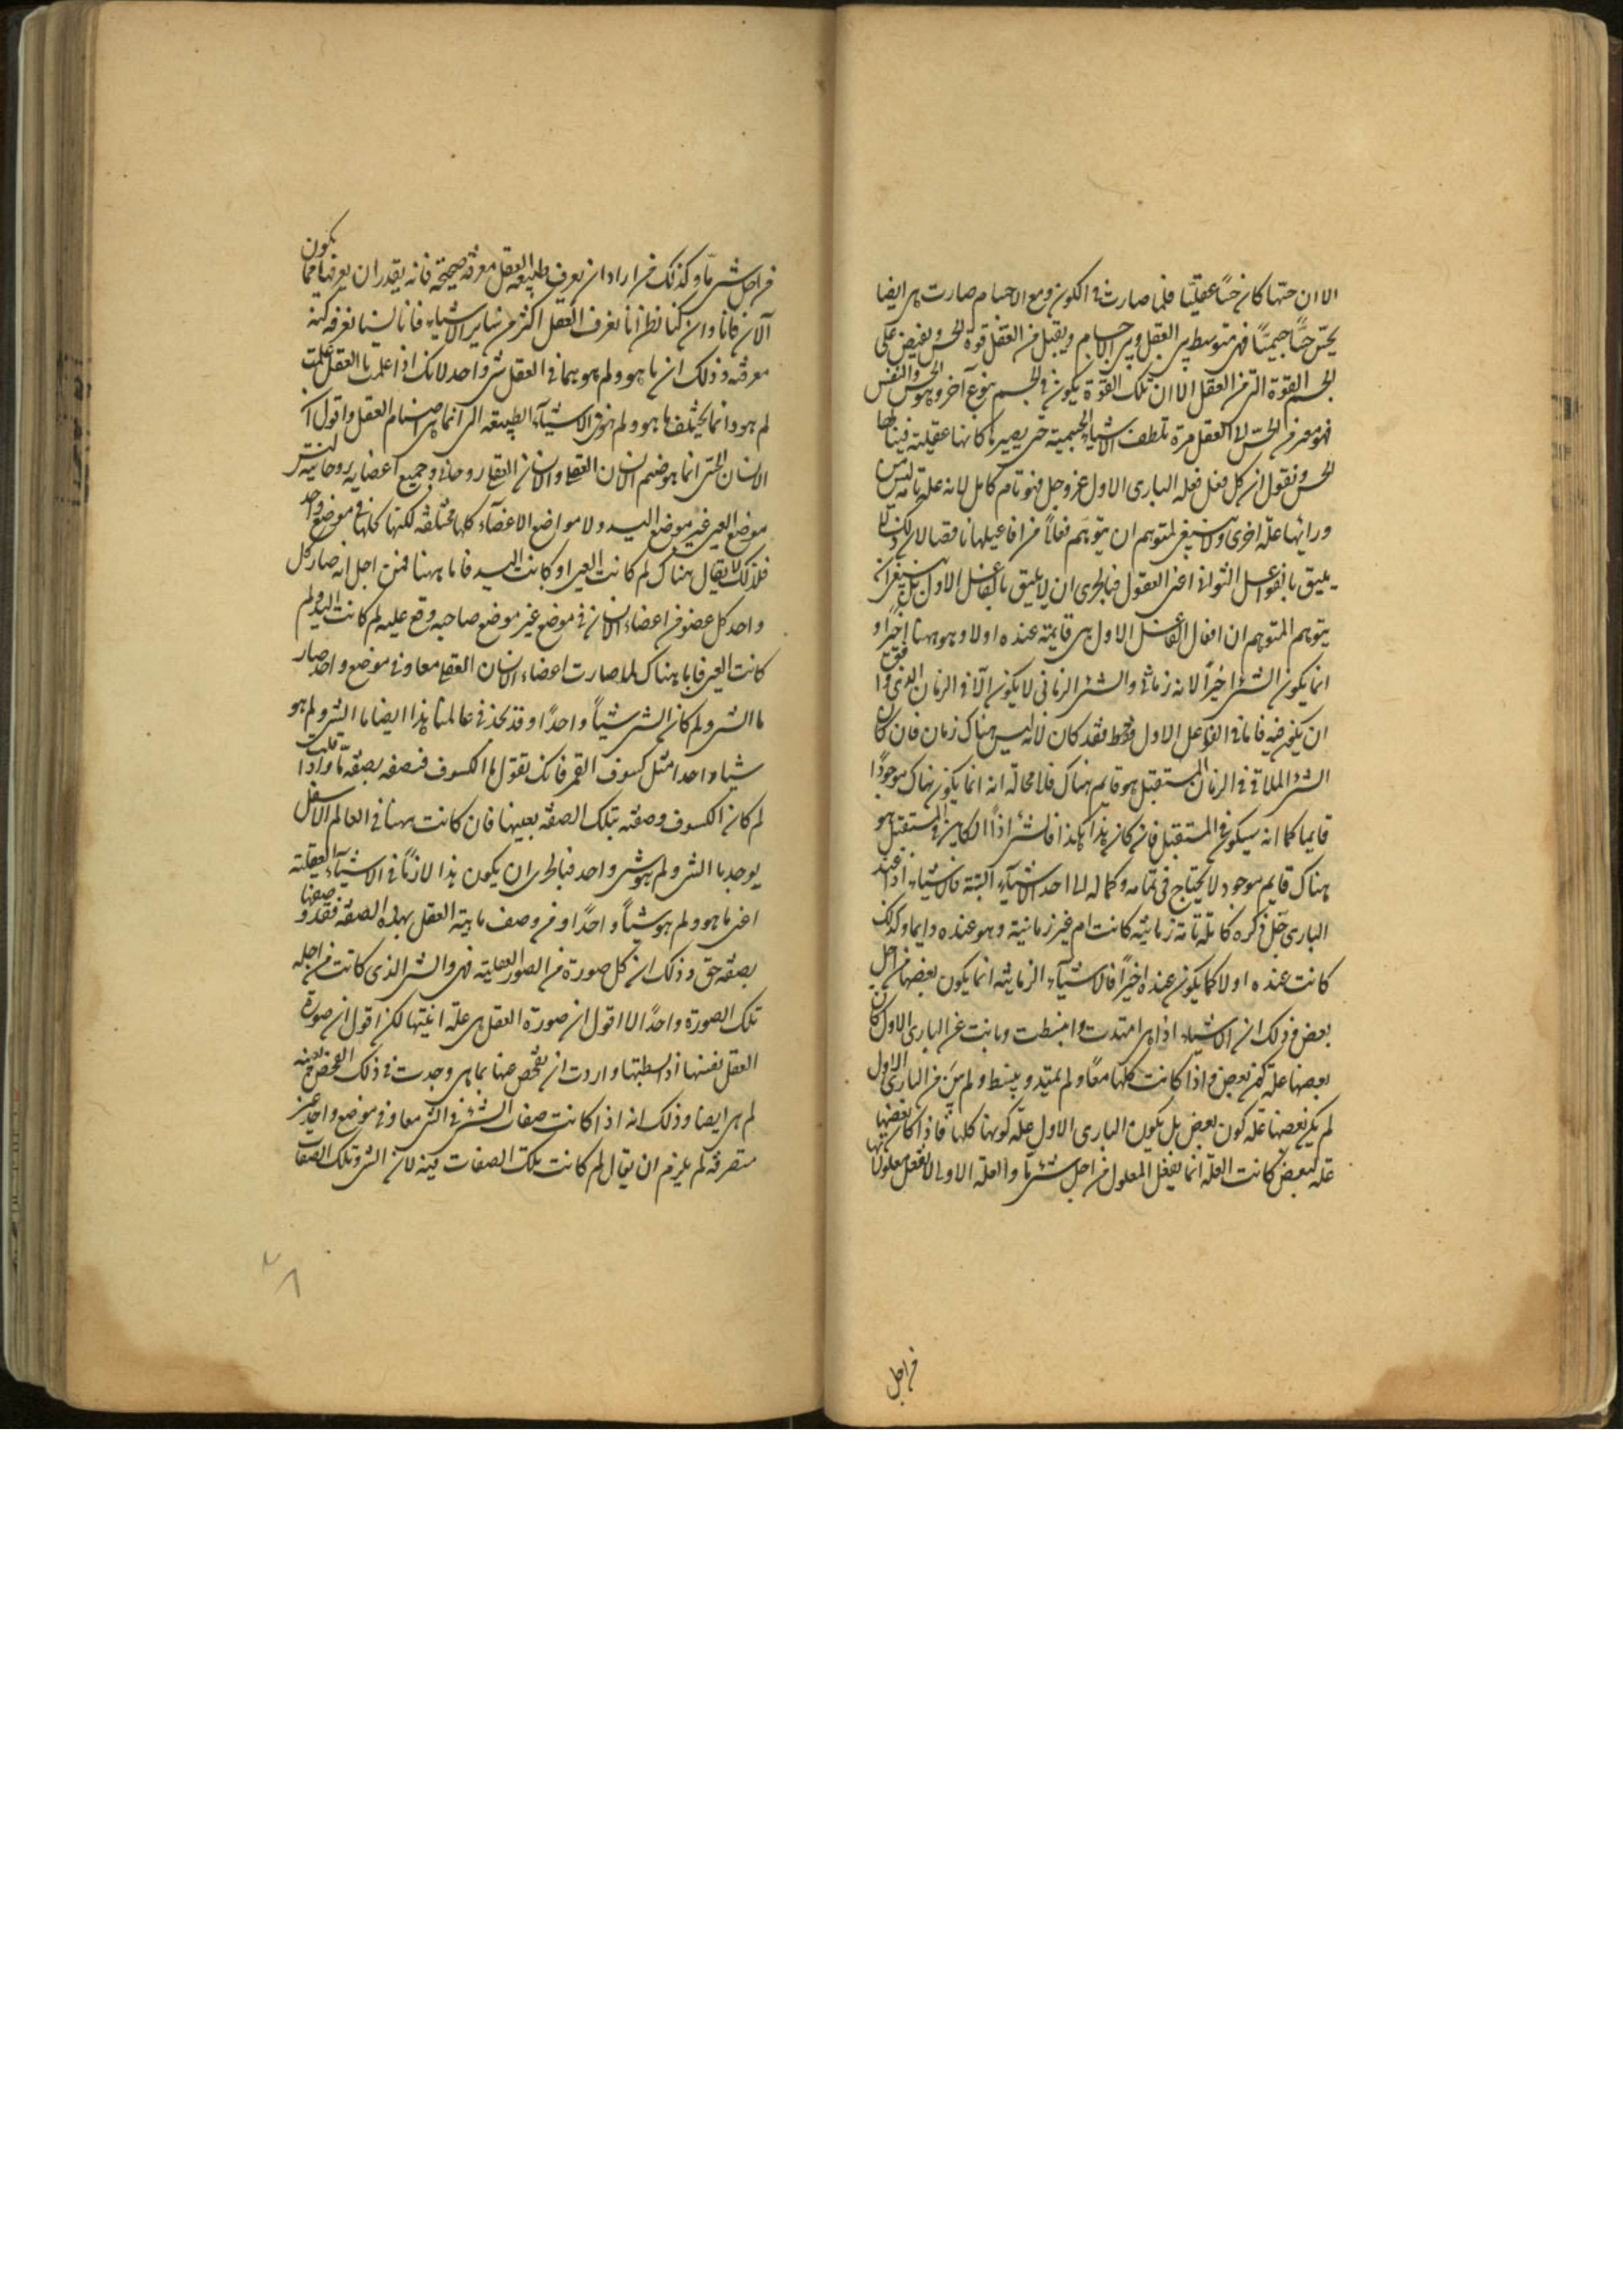 الا ان حسّها كان حسًّا عقليًّا فلما صارت فى الكون ومع الاجسام صارت هى ايضا
تحسّ حسًّا جسميًّا فهى متوسطة بين العقل وبين الاجسام ويقبل من العقل قوة الحسّ وتفيض على
الجسم القوة التى من العقل الا ان تلك القوة يكون فى الجسم بنوع آخر وهو الحسّ والنفس
الحس من العقل مرة تلطف الاشياء الجسمية حتى يصيرها كانها عقلية فينالها
الحس ونقول ان كل فعل فعله البارى الاول عز وجل فهو تام كامل لانه علة تامة ليس
ورائها علة اخرى ولا ينبغى لمتوهم ان يتوهم فعلاً من افاعيلها ناقصا لان ذلك لا
يليق بالفواعل الثوانى اعنى العقول فبالحرى ان لا يليق بالفاعل الاول بل ينبغى ان
يتوهم المتوهم ان افعال الفاعل الاول هى قايمة عنده اولا وهو ههنا اخيرا و
انما يكون الشئ اخيرًا لانه زمانى والشئ الزمانى لا يكون الّا فى الزمان الذى وافق
ان يكون فيه فاما فى الفاعل الاول فقد كان لانه ليس هناك زمان فان كان
الشئ الملاقى فى الزمان المستقبل هو قايم هناك فلا محالة انه انما يكون هناك موجودًا
قايما كما انه سيكون فى المستقبل فان كان هذا هكذا فالشئ اذًا الكاين فى المستقبل هو
هناك قايم موجود لا يحتاج فى تمامه وكماله الى احد الاشياء البتة فالاشياء اذًا عند
البارى جل ذكره كاملة تامة زمانية كانت ام غير زمانية وهو عنده دايما وكذلك
كانت عنده اولا كما يكون عنده اخيرًا فالاشياء الزمانية انما يكون بعضها من اجل
بعض وذلك ان الاشياء اذا هى امتدت وانبسطت وبانت عن البارى الاول كان
بعضها علة كون بعض واذا كانت كلها معًا ولم يمتد وينبسط ولم يبن من البارى الاول
لم يكن بعضها علة كون بعض بل يكون البارى الاول علة كونها كلها فاذا كان بعضها
علة لبعض كانت العلة انما يفعل المعلول من اجل شئ ما والعلة الاولى لا يفعل معلولاتها
من اجل
من اجل شئ ما وكذلك من اراد ان يعرف طبيعة العقل معرفة صحيحة فانه يقدر ان يعرفها مما يكون
الآن فانا وان كنا نظن انا نعرف العقل اكثر من ساير الاشياء فانا لسنا نعرفه كنه
معرفته وذلك ان ما هو ولم هو هما فى العقل شئ واحد لانك اذا علمت ما العقل علمت
لم هو وانما يختلف ما هو ولم هو فى الاشياء الطبيعية التى انما هى اصنام العقل واقول ان
الانسان الحسى انما هو صنم الانسان العقلى والانسان العقلى روحانى وجميع اعضايه روحانية ليس
موضع العين غير موضع اليد ولا مواضع الاعضاء كلها مختلفة لكنها كلها فى موضع واحد
فلذلك لا يقال هناك لم كانت العين او كانت اليد فاما ههنا فمن اجل انه صار كل
واحد كل عضو من اعضاء الانسان فى موضع غير موضع صاحبه وقع عليه لم كانت اليد ولم
كانت العين فاما هناك لما صارت اعضاء الانسان العقلى معا وفى موضع واحد صار
ما الشئ ولم كان الشئ شيئًا واحدًا وقد نجد فى عالمنا هذا ايضا ما الشئ ولم هو
شيئا واحدا مثل كسوف القمر فانك تقول ما الكسوف فتصفه بصفة ما واذا قلت
لم كان الكسوف وصفته بتلك الصفة بعينها فان كانت ههنا فى العالم الاسفل
يوجد ما الشئ ولم هو شئ واحد فبالحرى ان يكون هذا لازمًا فى الاشياء العقلية
اعنى ما هو ولم هو شيئًا واحدًا ومن وصف ماهية العقل بهذه الصفة فقد وصفها
بصفة حق وذلك ان كل صورة من الصور العقلية فهى والشئ الذى كانت من اجله
تلك الصورة واحدًا لا اقول ان صورة العقل هى علة انيتها لكن اقول ان صورة
العقل نفسها اذا بسطتها واردت ان تفحص عنها بما هى وجدت فى ذلك الفحص بعينه
لم هى ايضا وذلك انه اذا كانت صفات الشئ فى الشئ معا وفى موضع واحد غير
متفرقة لم يلزم ان يقال لم كانت تلك الصفات فيه لان الشئ وتلك الصفات